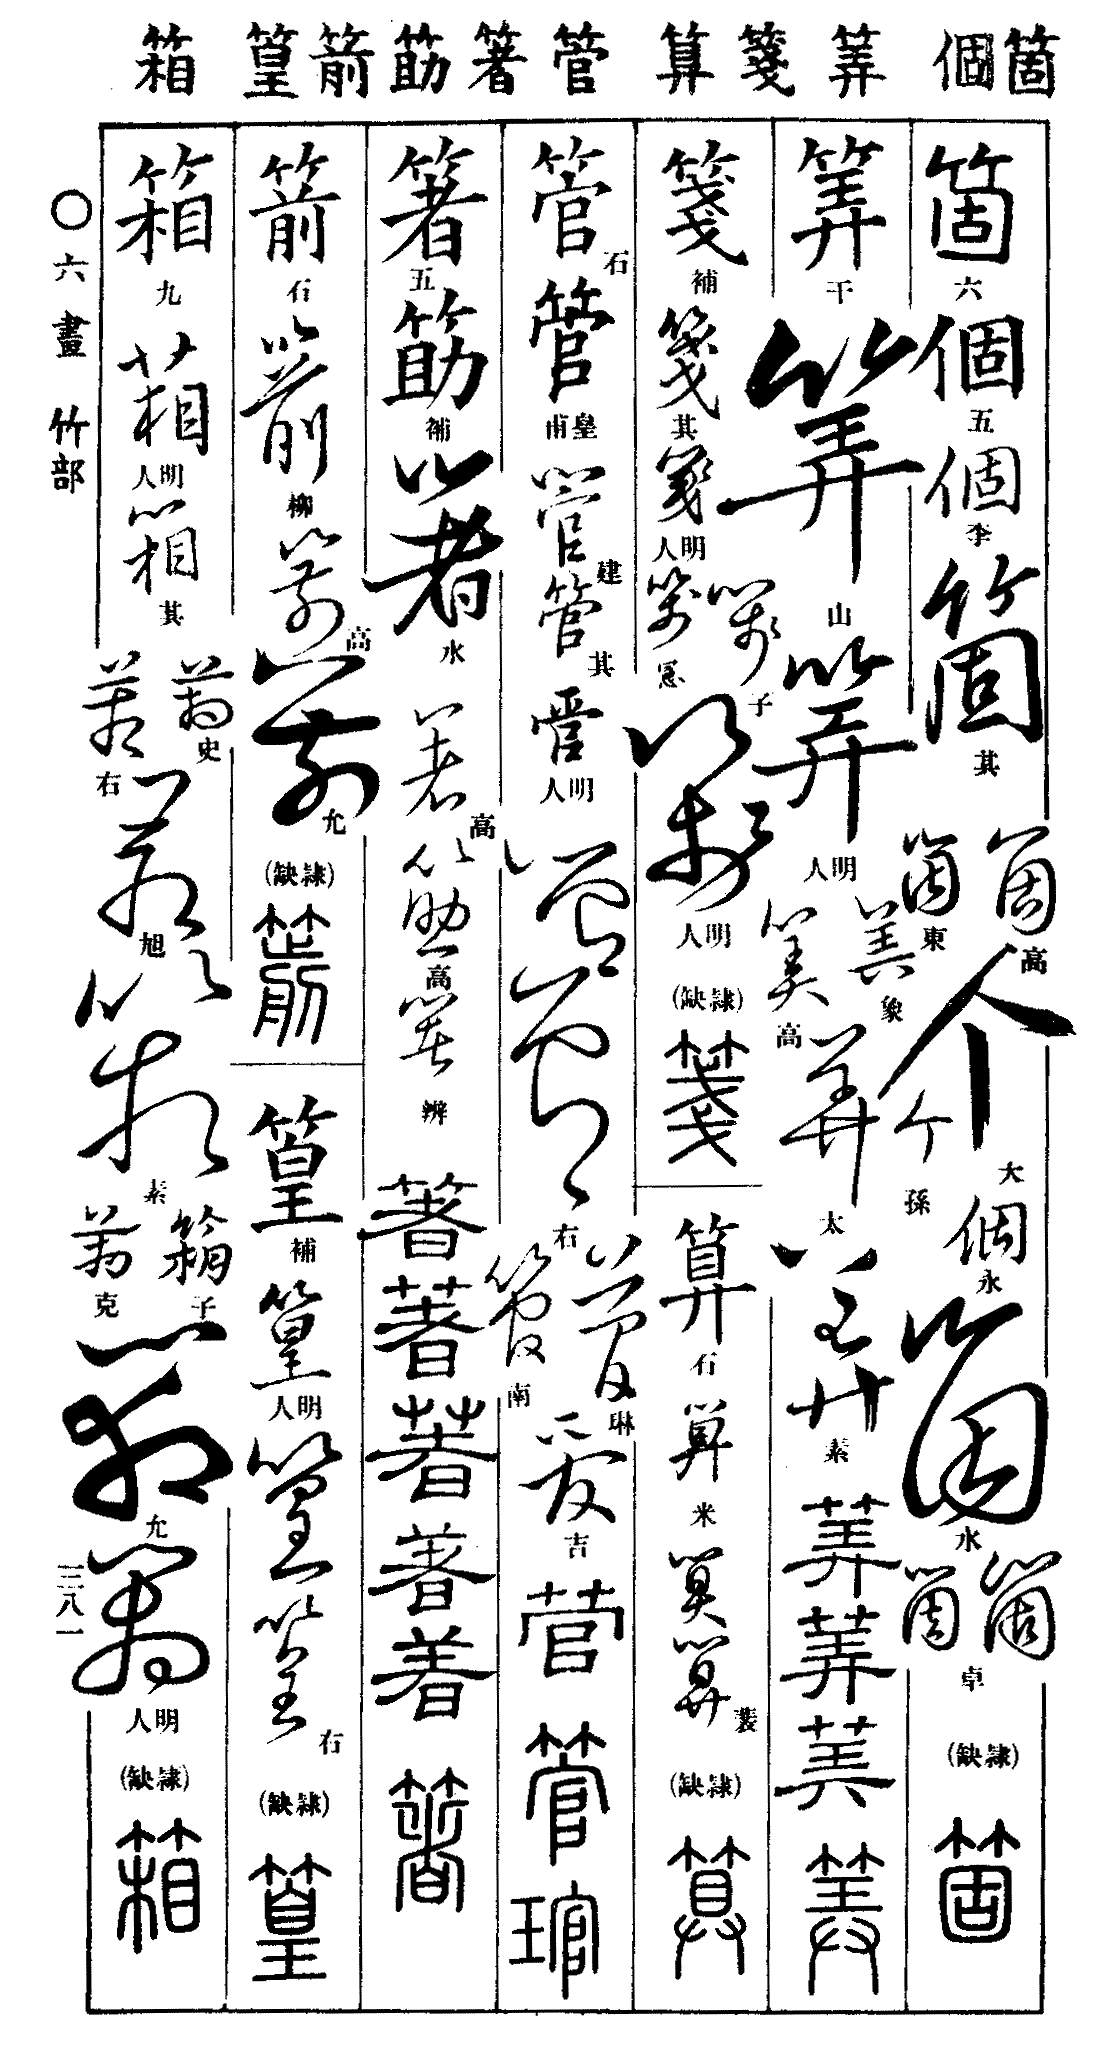 箇 個 筭 箋 算 管 箸 筯 箭 篁 箱
箇 六 個 五 個 李 箇 其 箇 高 箇 東 个 大 个 孫 個 永 箇 水 箇 箇 卓 (隸缺) 箇
筭 干 筭 山 筭 明人 筭 象 筭 高 筭 太 筭 素 筭 筭 筭 筭
箋 補 箋 其 箋 明人 箋 子 箋 箋 明人 (隸缺) 箋
算 石 算 米 算 算 裴 (隸缺) 算
管 石 管 皇甫 管 建 管 其 管 明人 管 管 右 管 琳 管 南 管 吉 管 管 琯
箸 五 筯 補 箸 水 箸 高 筯 高 箸 辨 箸 箸 箸 箸 箸 箸
箭 石 箭 柳 箭 高 箭 允 (隸缺) 箭
篁 補 篁 明人 篁 篁 右 (隸缺) 篁
箱 九 箱 明人 箱 其 箱 史 箱 右 箱 旭 箱 素 箱 子 箱 克 箱 允 箱 明人 (隸缺) 箱
〇六畫 竹部
三八一